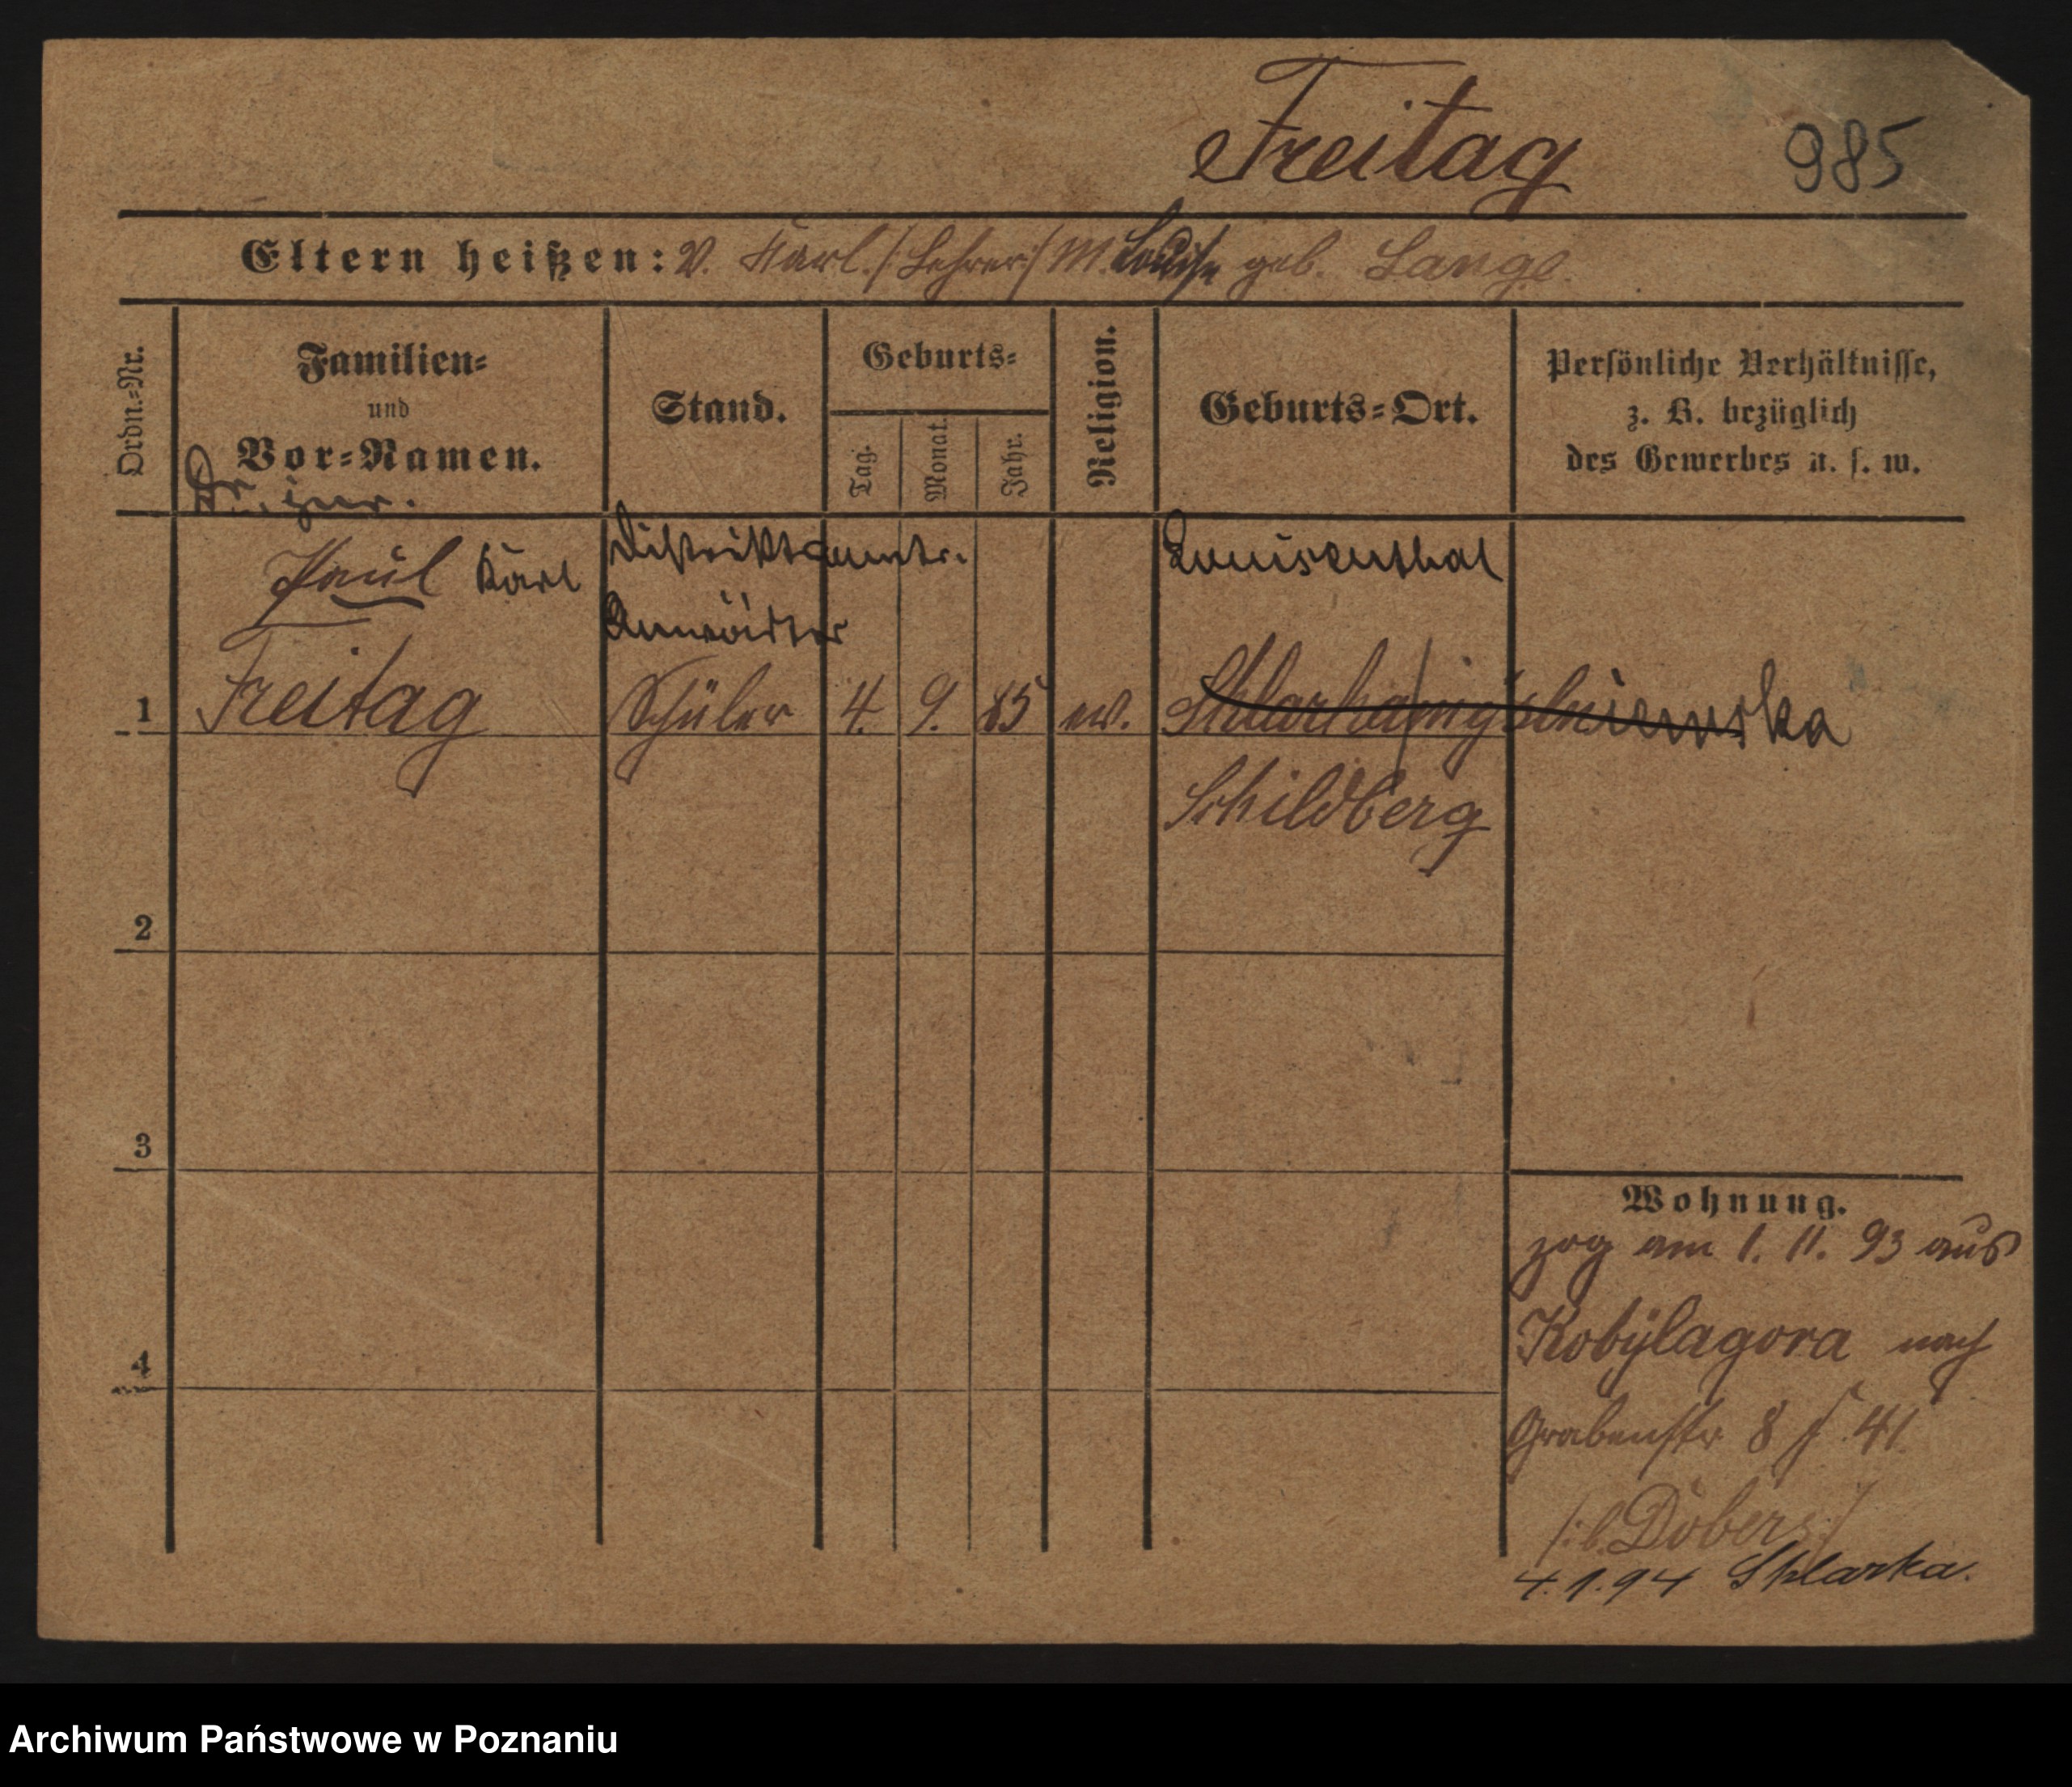 Freitag 985
Eltern heißen: V. Karl /: Lehrer :/ M. Louise geb. Lange.
Ordn.-Nr.
Familien-
und
Vor-Namen.
Stand.
Geburts-
Tag.
Monat.
Jahr.
Religion.
Geburts-Ort.
Persönliche Verhältnisse,
z. B. bezüglich
des Gewerbes u. s. w.
Paul Karl
Distriktsamts-
Anwärter
Louisenthal
1 Freitag Schüler 4. 9. 85 ev.
Schildberg
2
3
4
Wohnung.
zog am 1. 11. 93 aus
Kobylagora nach
Grabenstr 8 41
/: b. Döbers :/
4.1.94 Sklarka.
Archiwum Państwowe w Poznaniu